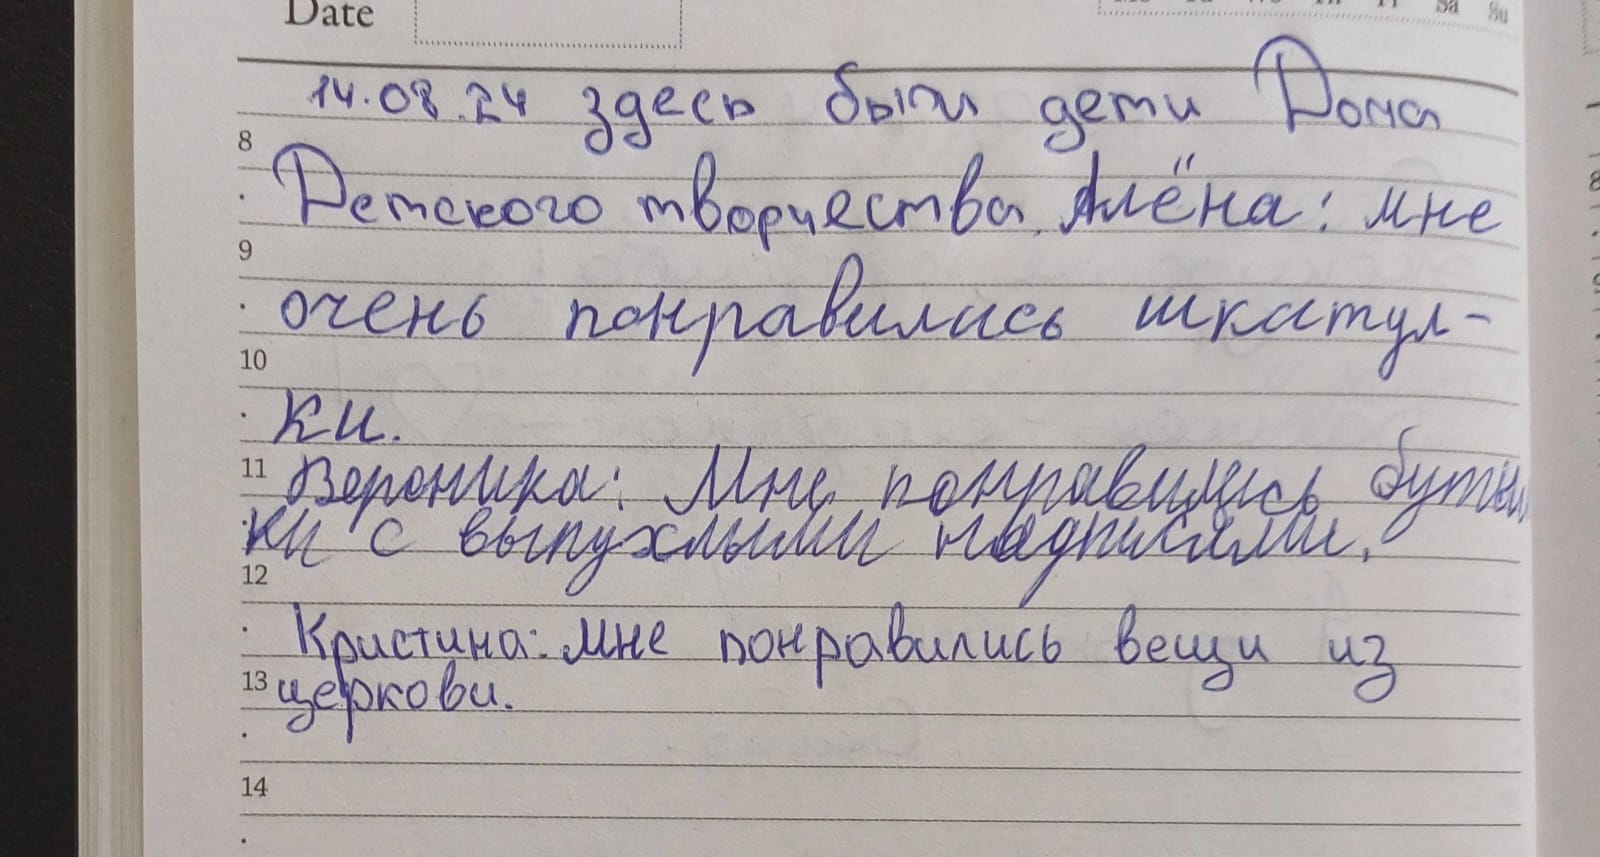 Date
Sa Su
14.08.24 здесь были дети Дома
8
Детского творчества. Алёна: мне
9
очень понравились шкатул-
10
ки.
11 Вероника: Мне понравились бутыл
ки с выпухлыми надписями.
12
Кристина: мне понравились вещи из
13 церкови.
14